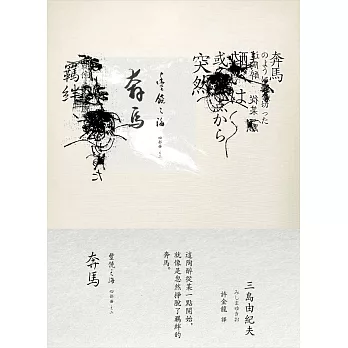 奔馬
のよう
った
突然
或
から
は
羈絆
豐饒之海
奔馬
四部曲 之二
三島由紀夫
みしまゆきお
許金龍 譯
這陶醉從某一點開始,
就像是忽然掙脫了羈絆的
奔馬。
豐饒之海 四部曲 之二
奔馬